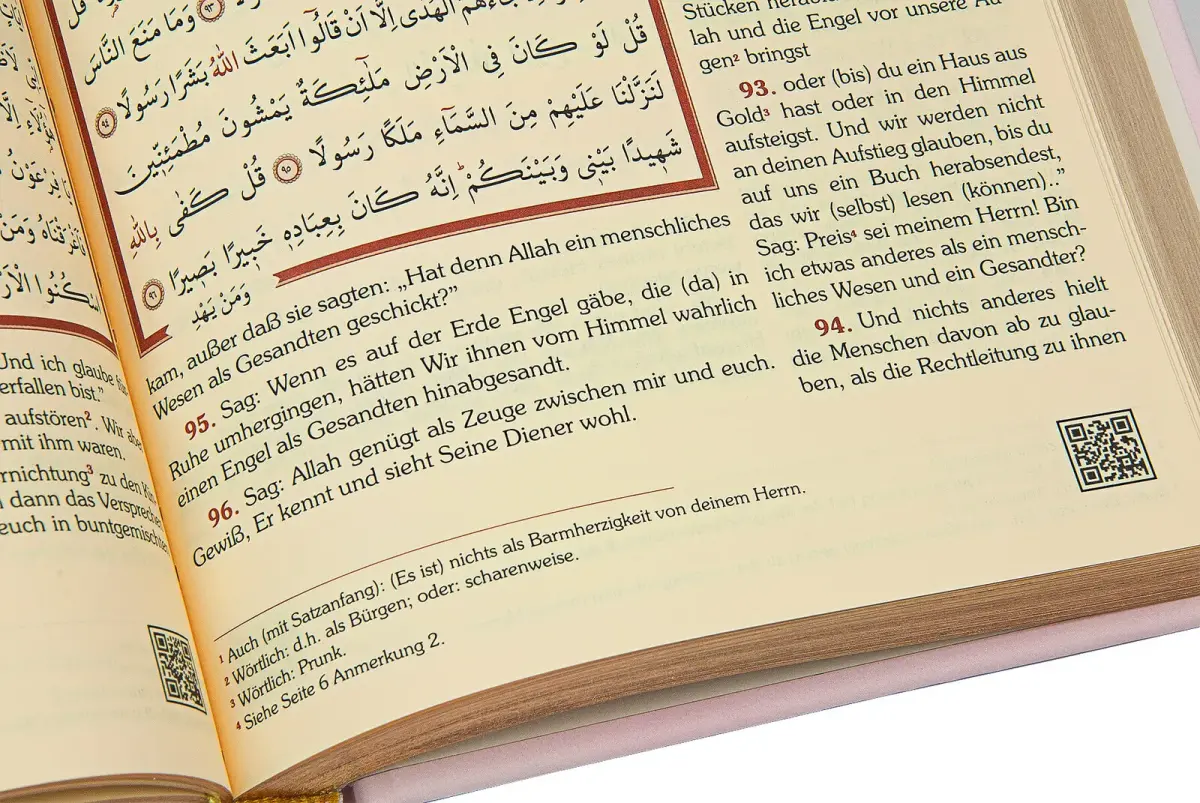 وَمَا مَنَعَ النَّاسَ
جَٓاءَهُمُ الْهُدٰٓى اِلَّٓا اَنْ قَالُٓوا اَبَعَثَ اللّٰهُ بَشَرًا رَسُولًا ﴿٩٤﴾
قُلْ لَوْ كَانَ فِي الْاَرْضِ مَلٰٓئِكَةٌ يَمْشُونَ مُطْمَئِنّ۪ينَ
لَنَزَّلْنَا عَلَيْهِمْ مِنَ السَّمَٓاءِ مَلَكًا رَسُولًا ﴿٩٥﴾ قُلْ كَفٰى بِاللّٰهِ
شَه۪يدًا بَيْن۪ي وَبَيْنَكُمْۜ اِنَّهُ كَانَ بِعِبَادِه۪ خَب۪يرًا بَص۪يرًا ﴿٩٦﴾
وَمَنْ يَهْدِ
kam, außer daß sie sagten: „Hat denn Allah ein menschliches
Wesen als Gesandten geschickt?”
95. Sag: Wenn es auf der Erde Engel gäbe, die (da) in
Ruhe umhergingen, hätten Wir ihnen vom Himmel wahrlich
einen Engel als Gesandten hinabgesandt.
96. Sag: Allah genügt als Zeuge zwischen mir und euch.
Gewiß, Er kennt und sieht Seine Diener wohl.
Stücken
lah und die Engel vor unsere Au-
gen² bringst
93. oder (bis) du ein Haus aus
Gold³ hast oder in den Himmel
aufsteigst. Und wir werden nicht
an deinen Aufstieg glauben, bis du
auf uns ein Buch herabsendest,
das wir (selbst) lesen (können)..”
Sag: Preis⁴ sei meinem Herrn! Bin
ich etwas anderes als ein mensch-
liches Wesen und ein Gesandter?
94. Und nichts anderes hielt
die Menschen davon ab zu glau-
ben, als die Rechtleitung zu ihnen
¹ Auch (mit Satzanfang): (Es ist) nichts als Barmherzigkeit von deinem Herrn.
² Wörtlich: d.h. als Bürgen; oder: scharenweise.
³ Wörtlich: Prunk.
⁴ Siehe Seite 6 Anmerkung 2.
Und ich glaube
erfallen bist.”
aufstören². Wir
mit ihm waren.
rnichtung³ zu den
dann das
euch in